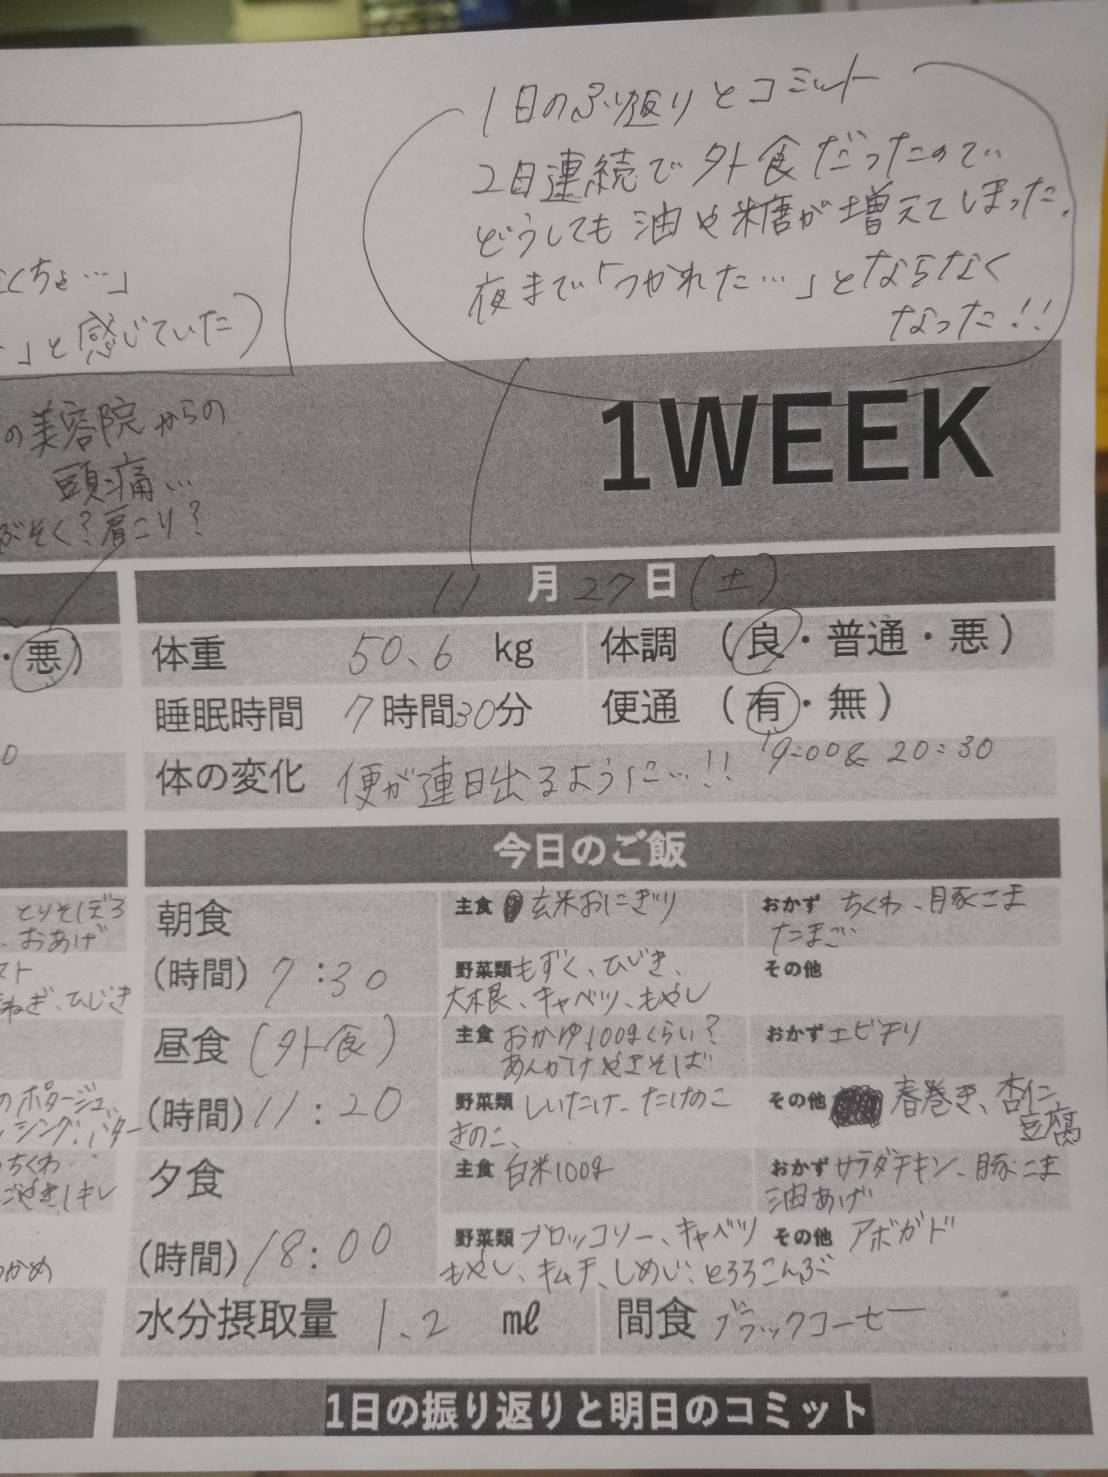 1日のふり返りとコミット
2日連続で外食だったので
どうしても油や糖が増えてしまった.
夜まで「つかれた…」とならなく
なった!!
くちゃ…」
」と感じていた)
の美容院からの
頭痛…
ぶそく?肩こり?
1WEEK
11月27日(土)
・悪)
体重 50.6 kg 体調 (良・普通・悪)
睡眠時間 7時間30分 便通 (有・無)
19:00& 20:30
体の変化 便が連日出るように…!!
今日のご飯
とりそぼろ
、おあげ
スト
ねぎ、ひじき
朝食
主食 玄米おにぎり
おかず ちくわ、豚こま
たまご
(時間) 7:30
野菜類 もずく、ひじき、
大根、キャベツ、もやし
その他
昼食 (外食)
主食 おかゆ100gくらい?
あんかけやきそば
おかず エビチリ
のポタージュ、
シング、バター
(時間) 11:20
野菜類 しいたけ、たけのこ
きのこ、
その他 春巻き、杏仁
豆腐
ちくわ
夕食
主食 白米100g
おかず サラダチキン、豚こま
油あげ
わかめ
(時間) 18:00
野菜類 ブロッコリー、キャベツ
もやし、キムチ、しめじ、とろろこんぶ
その他 アボガド
水分摂取量 1.2 ml 間食 ブラックコーヒー
1日の振り返りと明日のコミット